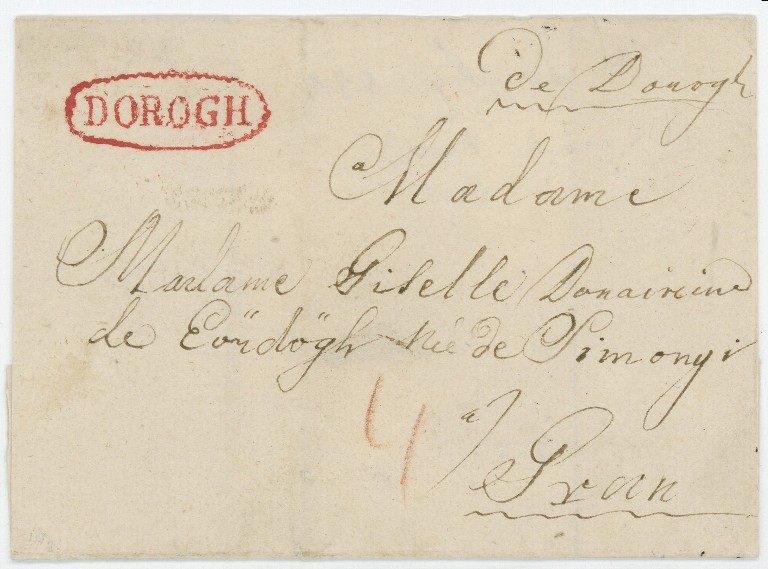 DOROGH
De Dorogh
a Madame
Madame Giselle Douairiere
de Eördögh née de Simonyi
4
a
Gran